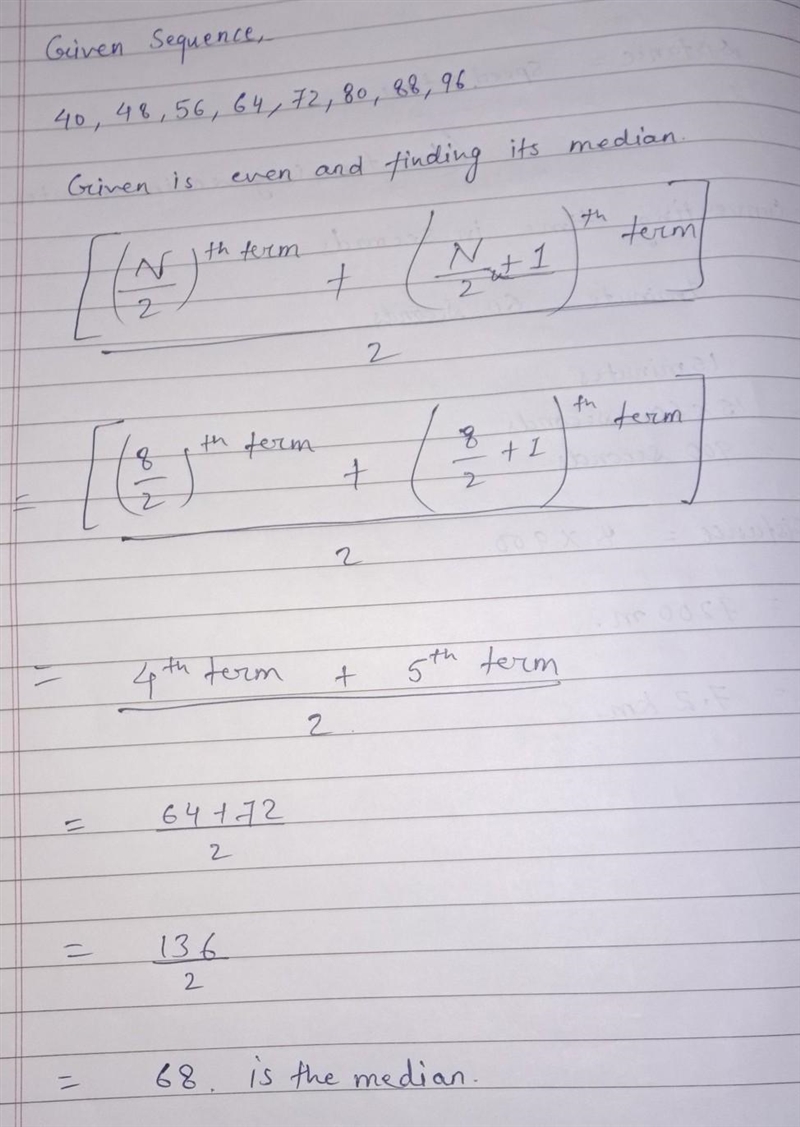 Given Sequence,
40, 48, 56, 64, 72, 80, 88, 96.
Given is even and finding its median.
[(N/2)^th term + (N/2 + 1)^th term]
2
= [(8/2)^th term + (8/2 + 1)^th term]
2
= 4^th term + 5^th term
2.
= 64+72
2
= 136
2
= 68. is the median.